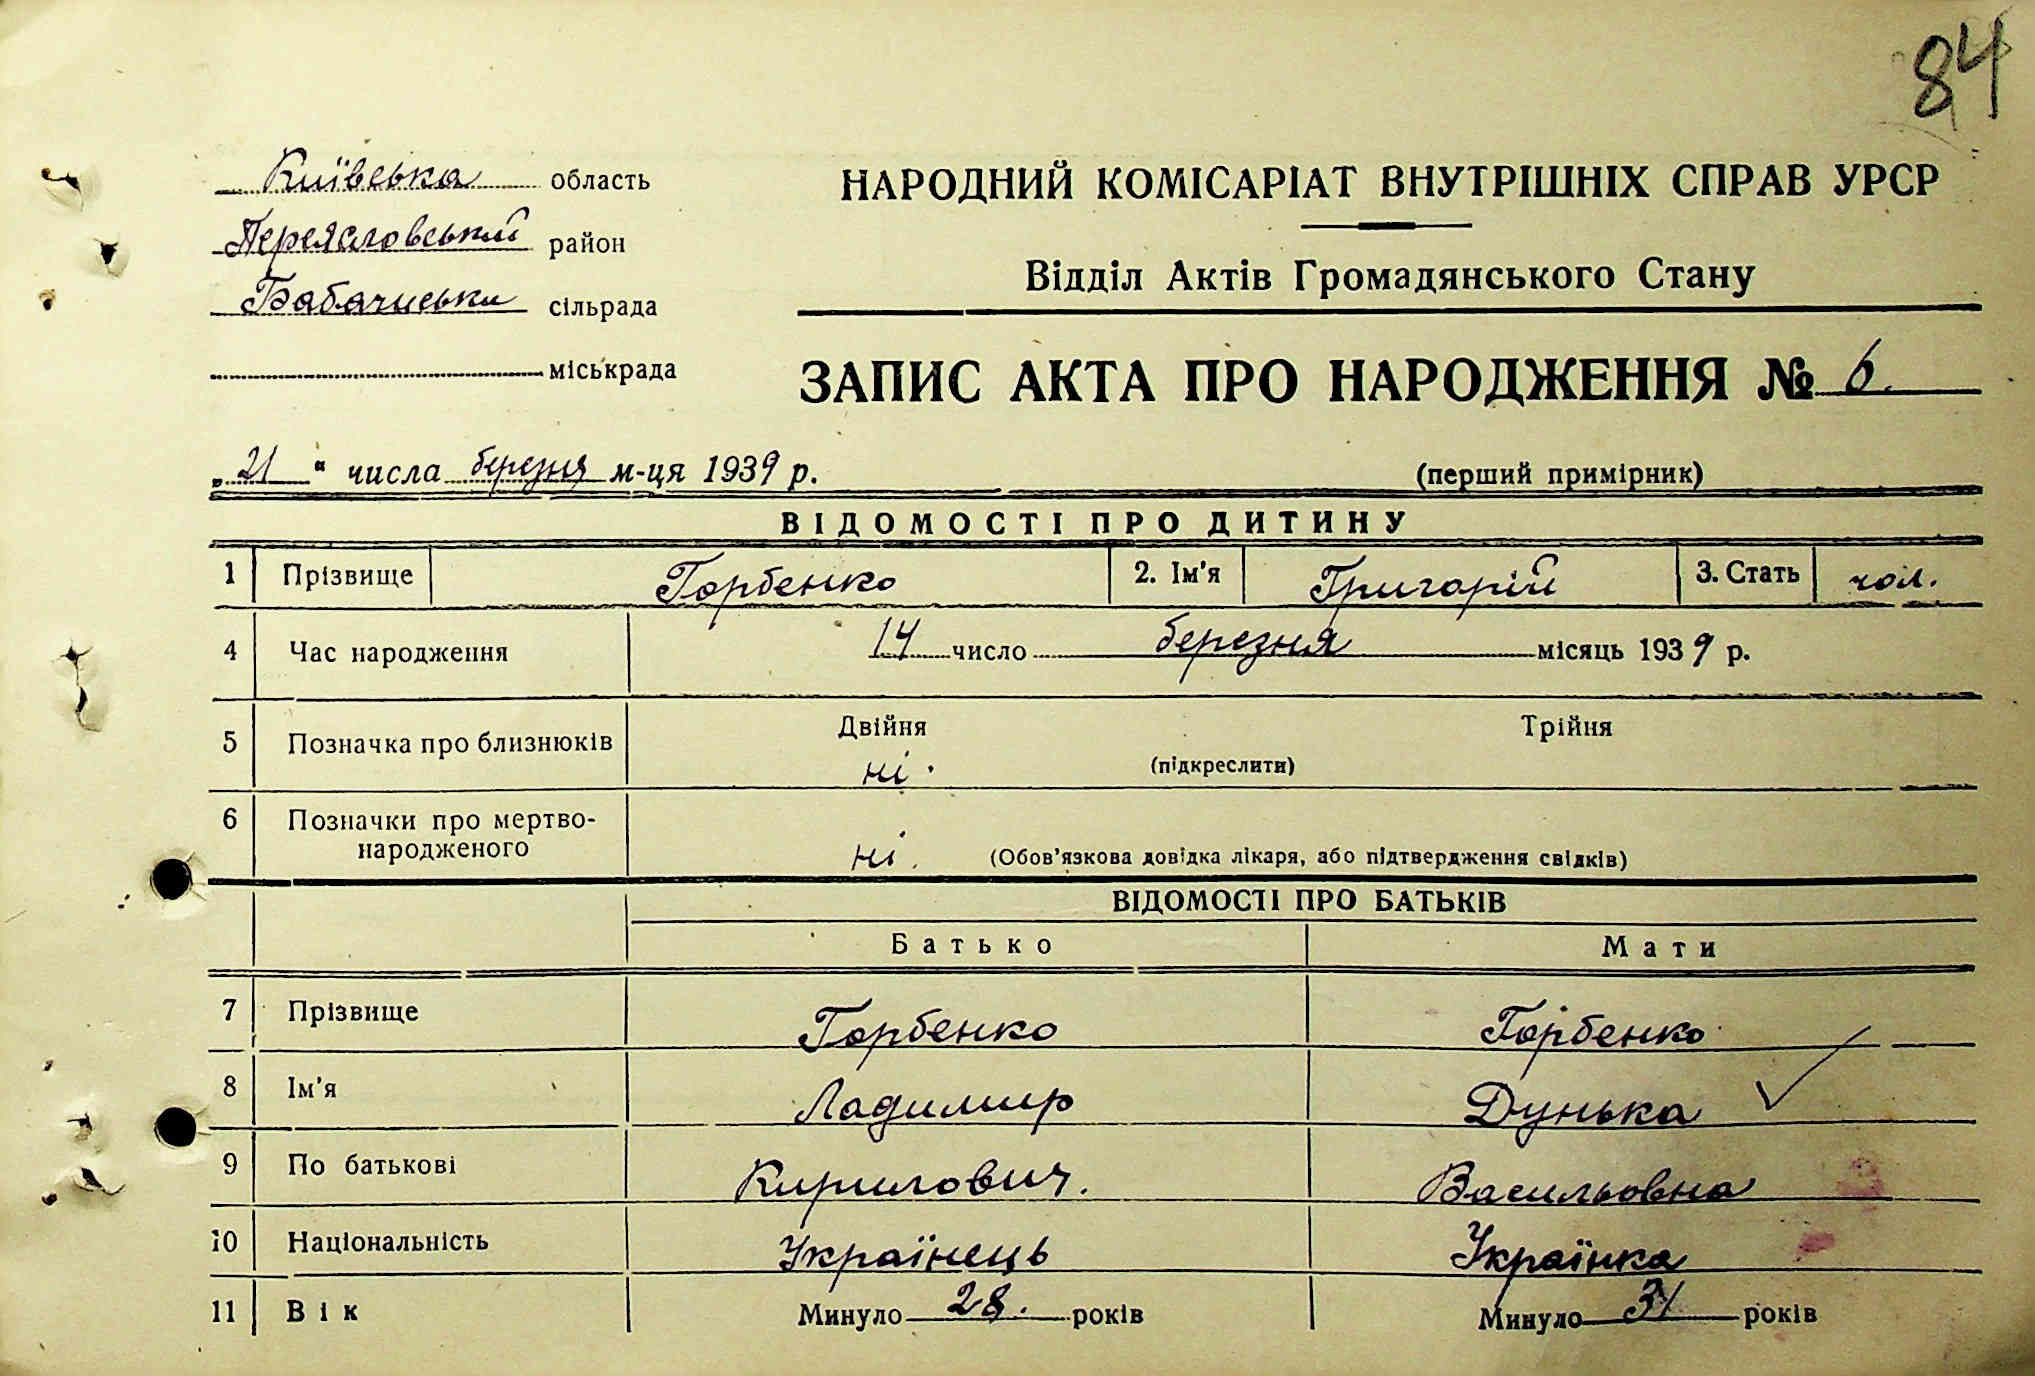 84
Київська область
Переясловський район
Бабачиська сільрада
міськрада
НАРОДНИЙ КОМІСАРІАТ ВНУТРІШНІХ СПРАВ УРСР
Відділ Актів Громадянського Стану
ЗАПИС АКТА ПРО НАРОДЖЕННЯ № 6.
„21" числа березня м-ця 1939 р. (перший примірник)
ВІДОМОСТІ ПРО ДИТИНУ
1 Прізвище Горбенко 2. Ім'я Григорій 3. Стать чол.
4 Час народження 14 число березня місяць 1939 р.
5 Позначка про близнюків Двійня Трійня
ні. (підкреслити)
6 Позначки про мертво-
народженого ні. (Обов'язкова довідка лікаря, або підтвердження свідків)
ВІДОМОСТІ ПРО БАТЬКІВ
Батько Мати
7 Прізвище Горбенко Горбенко
8 Ім'я Ладимир Дунька
9 По батькові Кирилович. Васильовна
10 Національність Українець Українка
11 Вік Минуло 28. років Минуло 31 років